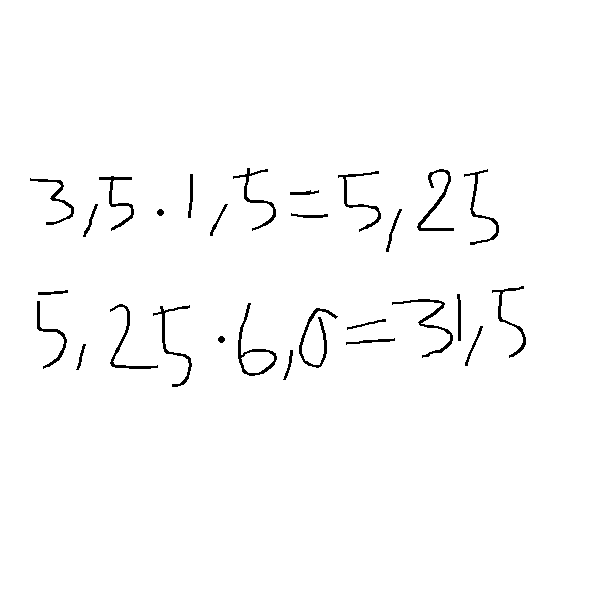 3,5·1,5=5,25
5,25·6,0=31,5